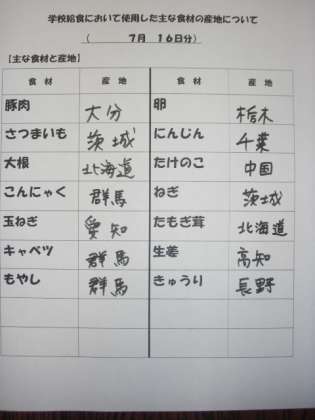 学校給食において使用した主な食材の産地について
( 7月 16日分)
【主な食材と産地】
食材 産地 食材 産地
豚肉 大分 卵 栃木
さつまいも 茨城 にんじん 千葉
大根 北海道 たけのこ 中国
こんにゃく 群馬 ねぎ 茨城
玉ねぎ 愛知 たもぎ茸 北海道
キャベツ 群馬 生姜 高知
もやし 群馬 きゅうり 長野